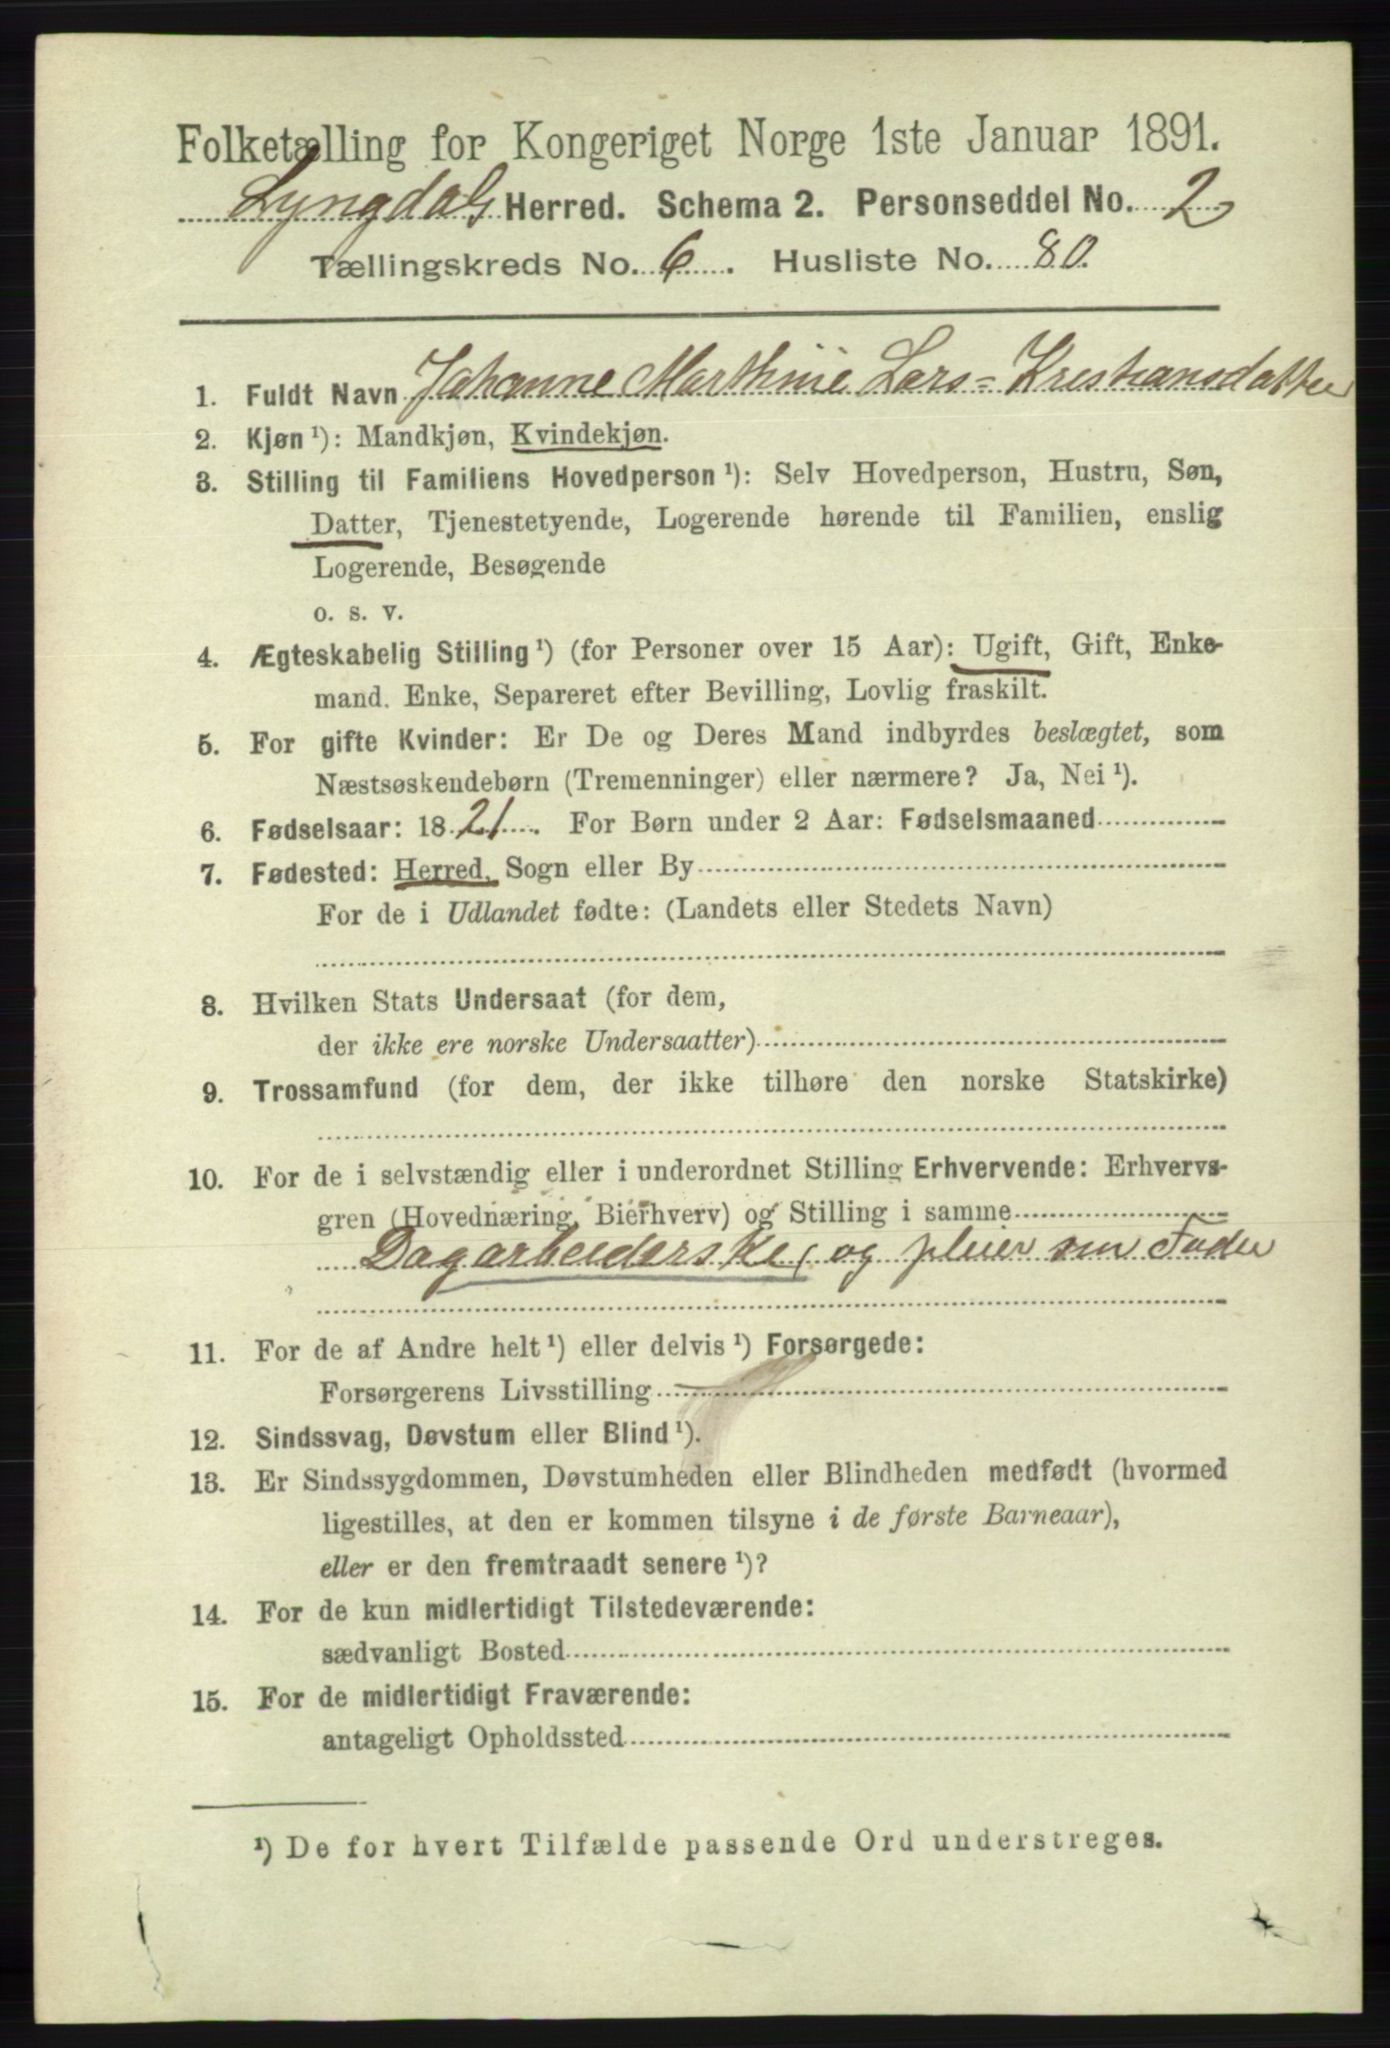 Folketælling for Kongeriget Norge 1ste Januar 1891.
Lyngdals Herred. Schema 2. Personseddel No. 2
Tællingskreds No. 6. Husliste No. 80.
1. Fuldt Navn Johanne Marthine Lars-Kristiansdatter
2. Kjøn ¹): Mandkjøn, Kvindekjøn.
3. Stilling til Familiens Hovedperson ¹): Selv Hovedperson, Hustru, Søn,
Datter, Tjenestetyende, Logerende hørende til Familien, enslig
Logerende, Besøgende
o. s. v.
4. Ægteskabelig Stilling ¹) (for Personer over 15 Aar): Ugift, Gift, Enke-
mand. Enke, Separeret efter Bevilling, Lovlig fraskilt.
5. For gifte Kvinder: Er De og Deres Mand indbyrdes beslægtet, som
Næstsøskendebørn (Tremenninger) eller nærmere? Ja, Nei ¹).
6. Fødselsaar: 1821. For Børn under 2 Aar: Fødselsmaaned
7. Fødested: Herred, Sogn eller By
For de i Udlandet fødte: (Landets eller Stedets Navn)
8. Hvilken Stats Undersaat (for dem,
der ikke ere norske Undersaatter)
9. Trossamfund (for dem, der ikke tilhøre den norske Statskirke)
10. For de i selvstændig eller i underordnet Stilling Erhvervende: Erhvervs-
gren (Hovednæring, Bierhverv) og Stilling i samme
Dagarbeiderske, og pleier sin Fader
11. For de af Andre helt ¹) eller delvis ¹) Forsørgede:
Forsørgerens Livsstilling
12. Sindssvag, Døvstum eller Blind ¹).
13. Er Sindssygdommen, Døvstumheden eller Blindheden medfødt (hvormed
ligestilles, at den er kommen tilsyne i de første Barneaar),
eller er den fremtraadt senere ¹)?
14. For de kun midlertidigt Tilstedeværende:
sædvanligt Bosted
15. For de midlertidigt Fraværende:
antageligt Opholdssted
¹) De for hvert Tilfælde passende Ord understreges.